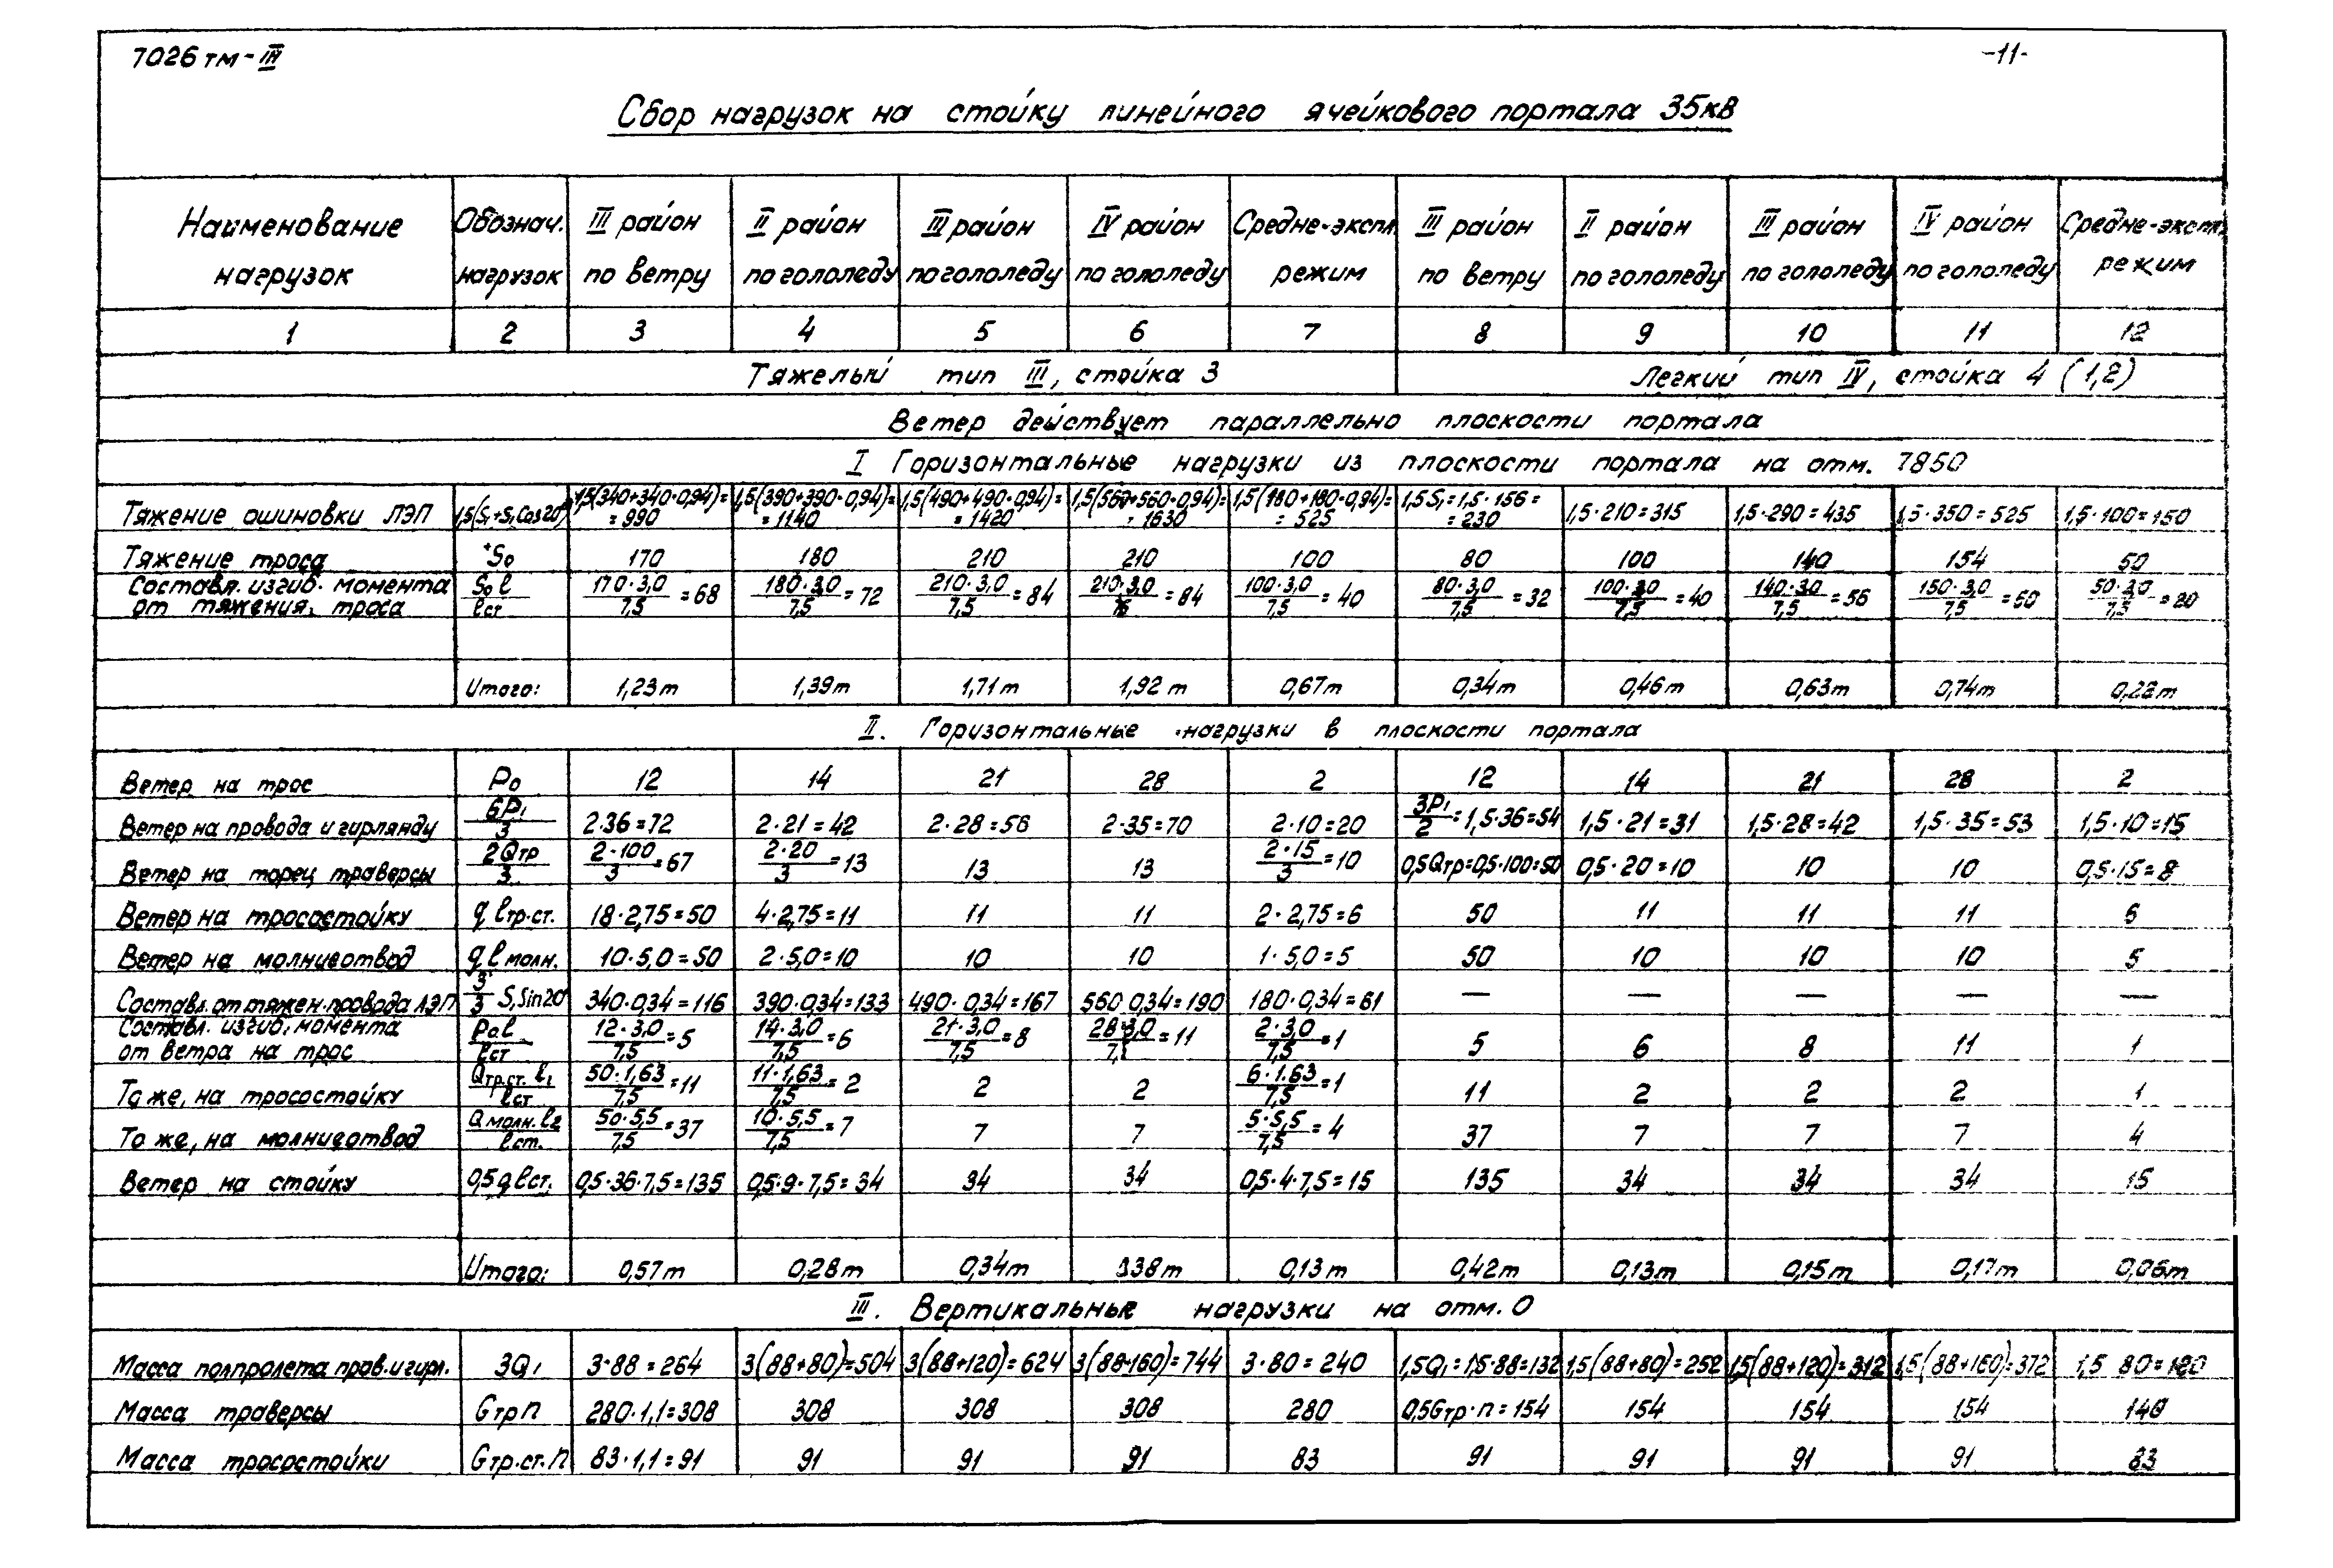 7026тм-III
-11-
Сбор нагрузок на стойку линейного ячейкового портала 35кВ
Наименование нагрузок | Обознач. нагрузок | III район по ветру | II район по гололеду | III район по гололеду | IV район по гололеду | Средне-экспл. режим | III район по ветру | II район по гололеду | III район по гололеду | IV район по гололеду | Средне-экспл. режим
1 | 2 | 3 | 4 | 5 | 6 | 7 | 8 | 9 | 10 | 11 | 12
Тяжелый тип III, стойка 3 | Легкий тип IV, стойка 4 (1,2)
Ветер действует параллельно плоскости портала
I Горизонтальные нагрузки из плоскости портала на отм. 7850
Тяжение ошиновки ЛЭП | 1,5(S₁+S₁Cos20°) | 1,5(340+340·0,94)= =990 | 1,5(390+390·0,94)= =1140 | 1,5(490+490·0,94)= =1420 | 1,5(560+560·0,94)= =1630 | 1,5(180+180·0,94)= =525 | 1,5S₁=1,5·156= =230 | 1,5·210=315 | 1,5·290=435 | 1,5·350=525 | 1,5·100=150
Тяжение троса | S₀ | 170 | 180 | 210 | 210 | 100 | 80 | 100 | 140 | 154 | 50
Составл. изгиб. момента от тяжения, троса | S₀l/lст | 170·3,0/7,5=68 | 180·3,0/7,5=72 | 210·3,0/7,5=84 | 210·3,0/ =84 | 100·3,0/7,5=40 | 80·3,0/7,5=32 | 100·3,0/7,5=40 | 140·3,0/7,5=56 | 150·3,0/7,5=60 | 50·3,0/7,5=20
Итого: | 1,23т | 1,39т | 1,71т | 1,92т | 0,67т | 0,34т | 0,46т | 0,63т | 0,74т | 0,22т
II. Горизонтальные нагрузки в плоскости портала
Ветер на трос | P₀ | 12 | 14 | 21 | 28 | 2 | 12 | 14 | 21 | 28 | 2
Ветер на провода и гирлянду | 6P₁/3 | 2·36=72 | 2·21=42 | 2·28=56 | 2·35=70 | 2·10=20 | 3P₁/2=1,5·36=54 | 1,5·21=31 | 1,5·28=42 | 1,5·35=53 | 1,5·10=15
Ветер на торец траверсы | 2Qтр/3 | 2·100/3=67 | 2·20/3=13 | 13 | 13 | 2·15/3=10 | 0,5Qтр=0,5·100=50 | 0,5·20=10 | 10 | 10 | 0,5·15=8
Ветер на тросостойку | q lтр.ст. | 18·2,75=50 | 4·2,75=11 | 11 | 11 | 2·2,75=6 | 50 | 11 | 11 | 11 | 6
Ветер на молниеотвод | q l молн. | 10·5,0=50 | 2·5,0=10 | 10 | 10 | 1·5,0=5 | 50 | 10 | 10 | 10 | 5
Составл. от тяжен. провода ЛЭП | 3/3 S₁Sin20° | 340·0,34=116 | 390·0,34=133 | 490·0,34=167 | 560 0,34=190 | 180·0,34=61 | — | — | — | — | —
Составл. изгиб. момента от ветра на трос | P₀l/lст | 12·3,0/7,5=5 | 14·3,0/7,5=6 | 21·3,0/7,5=8 | 28·3,0/7,5=11 | 2·3,0/7,5=1 | 5 | 6 | 8 | 11 | 1
То же, на тросостойку | Qтр.ст. l₁/lст | 50·1,63/7,5=11 | 11·1,63/7,5=2 | 2 | 2 | 6·1.63/7,5=1 | 11 | 2 | 2 | 2 | 1
То же, на молниеотвод | Qмолн. l₂/lст. | 50·5,5/7,5=37 | 10·5,5/7,5=7 | 7 | 7 | 5·5,5/7,5=4 | 37 | 7 | 7 | 7 | 4
Ветер на стойку | 0,5qlст. | 0,5·36·7,5=135 | 0,5·9·7,5=34 | 34 | 34 | 0,5·4·7,5=15 | 135 | 34 | 34 | 34 | 15
Итого: | 0,57т | 0,28т | 0,34т | 0,38т | 0,13т | 0,42т | 0,13т | 0,15т | 0,17т | 0,06т
III. Вертикальные нагрузки на отм. 0
Масса полпролета пров. и гирл. | 3Q₁ | 3·88=264 | 3(88+80)=504 | 3(88+120)=624 | 3(88+160)=744 | 3·80=240 | 1,5Q₁=1,5·88=132 | 1,5(88+80)=252 | 1,5(88+120)=312 | 1,5(88+160)=372 | 1,5 80=120
Масса траверсы | Gтр n | 280·1,1=308 | 308 | 308 | 308 | 280 | 0,5Gтр·n=154 | 154 | 154 | 154 | 140
Масса тросостойки | Gтр.ст. n | 83·1,1=91 | 91 | 91 | 91 | 83 | 91 | 91 | 91 | 91 | 83